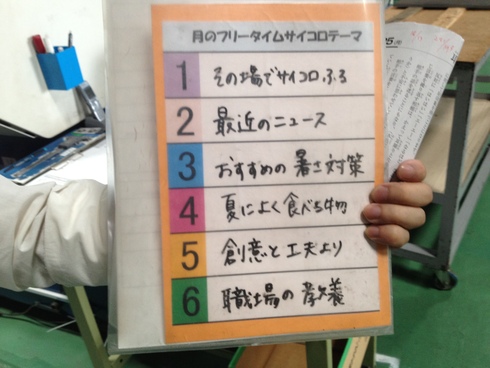 月のフリータイムサイコロテーマ
1 その場でサイコロふる
2 最近のニュース
3 おすすめの暑さ対策
4 夏によく食べる物
5 創意と工夫より
6 職場の教養